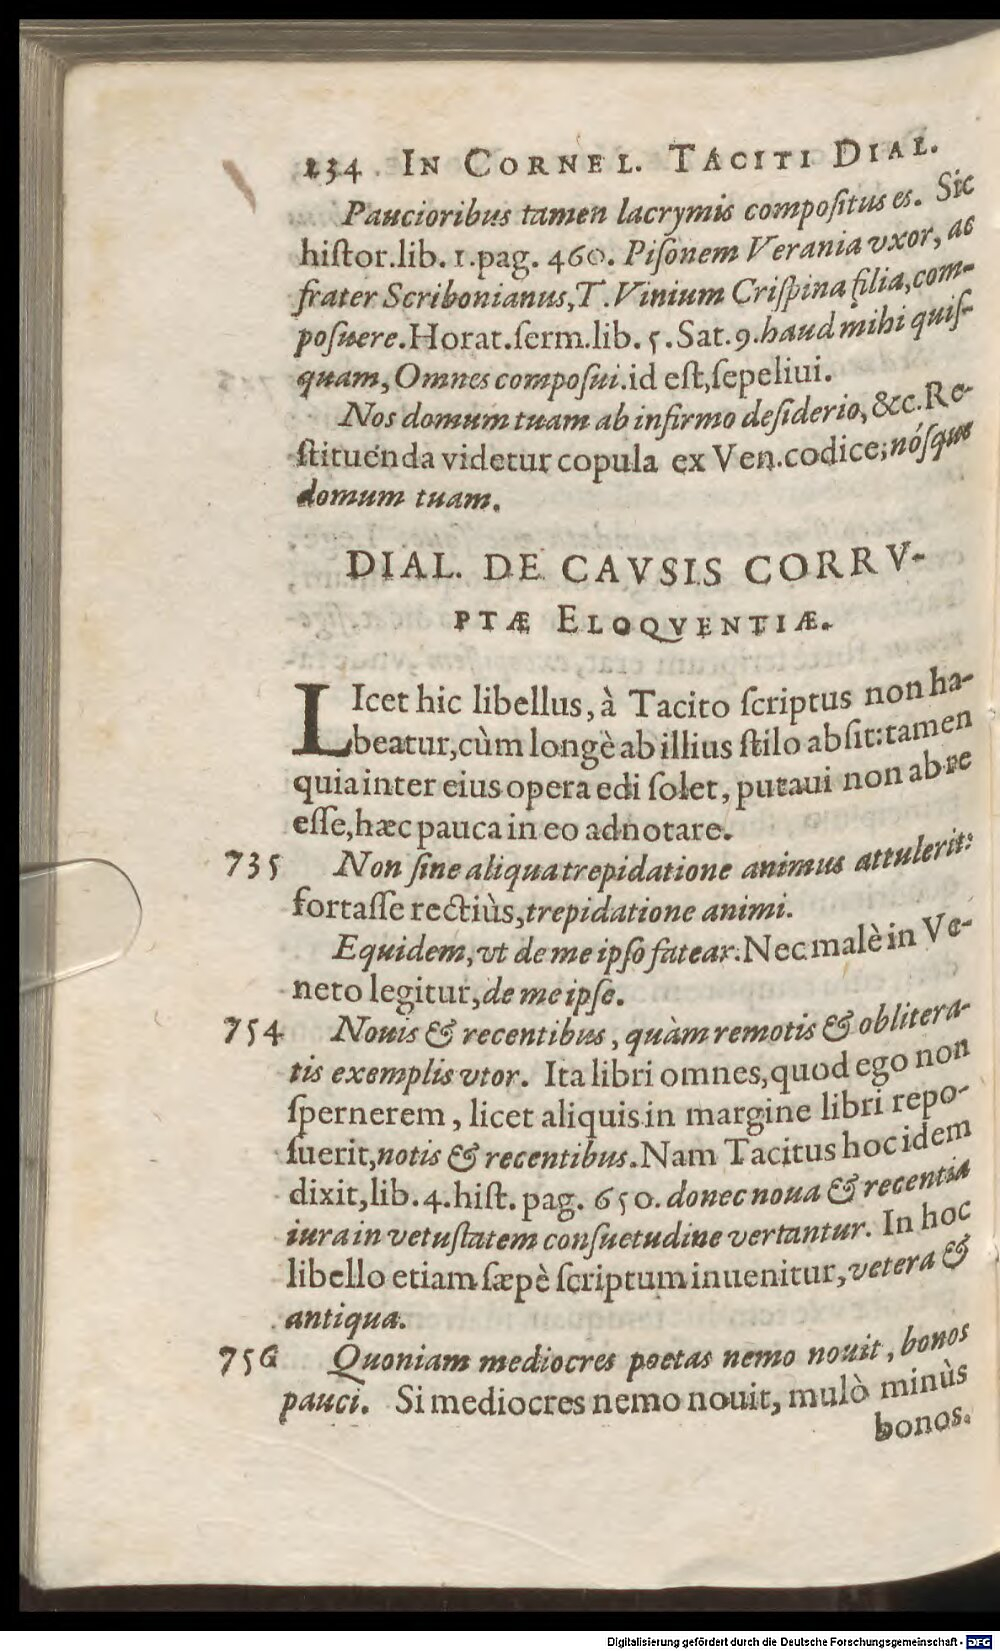 234 IN CORNEL. TACITI DIAL.
Paucioribus tamen lacrymis compoſitus es. Sic
hiſtor.lib. 1.pag. 460. Piſonem Verania vxor, ac
frater Scribonianus,T.Vinium Criſpina filia,com-
poſuere.Horat.ſerm.lib. 5.Sat.9.haud mihi quiſ-
quam, Omnes compoſui.id eſt,ſepeliui.
Nos domum tuam ab infirmo deſiderio, &c.Re-
ſtituenda videtur copula ex Ven.codice;nóſque
domum tuam.
DIAL. DE CAVSIS CORRV-
PTÆ ELOQVENTIÆ.
LIcet hic libellus, à Tacito ſcriptus non ha-
beatur,cùm longè ab illius ſtilo abſit:tamen
quia inter eius opera edi ſolet, putaui non ab re
eſſe,hæc pauca in eo adnotare.
735 Non ſine aliqua trepidatione animus attulerit:
fortaſſe rectiùs,trepidatione animi.
Equidem,vt de me ipſo fatear.Nec malè in Ve-
neto legitur,de me ipſe.
754 Nouis & recentibus, quàm remotis & oblitera-
tis exemplis vtor. Ita libri omnes,quod ego non
ſpernerem, licet aliquis in margine libri repo-
ſuerit,notis & recentibus.Nam Tacitus hoc idem
dixit,lib.4.hiſt. pag. 650. donec noua & recentia
iura in vetuſtatem conſuetudine vertantur. In hoc
libello etiam ſæpè ſcriptum inuenitur,vetera &
antiqua.
756 Quoniam mediocres poetas nemo nouit, bonos
pauci. Si mediocres nemo nouit, mulò minùs
bonos.
Digitalisierung gefördert durch die Deutsche Forschungsgemeinschaft - DFG